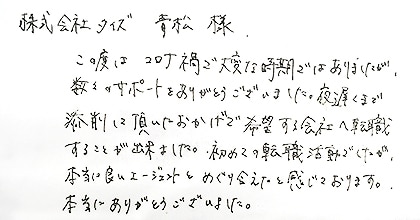 株式会社タイズ 青松 様.
この度は コロナ禍で大変な時期ではありましたが、
数々のサポートをありがとうございました。夜遅くまで
添削して頂いたおかげで希望する会社へ転職
することが出来ました。初めての転職活動でしたが、
本当に良いエージェントとめぐり会えたと感じております。
本当にありがとうございました。